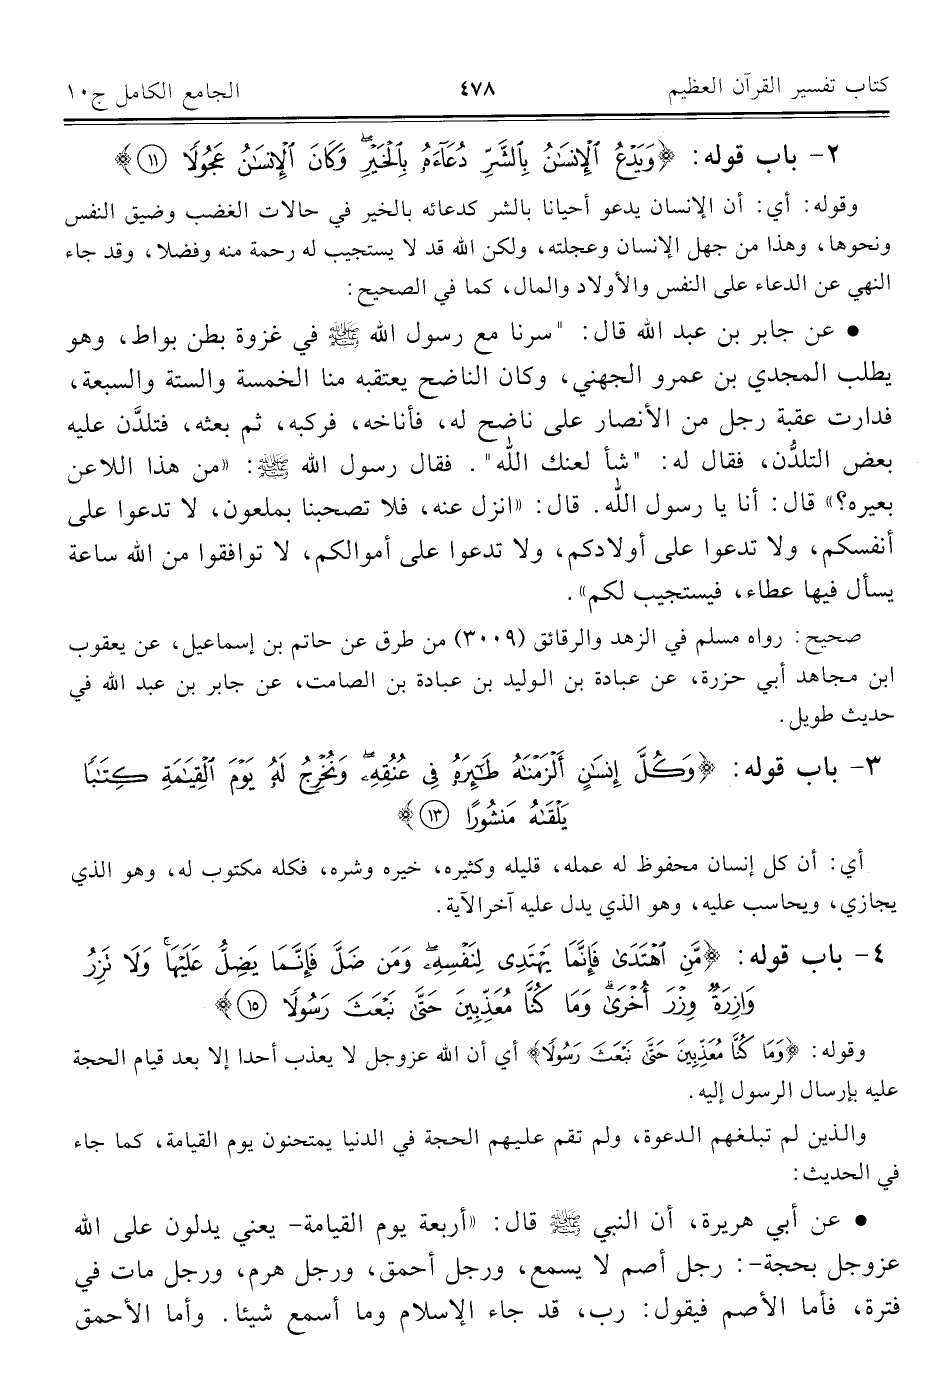 كتاب تفسير القرآن العظيم ٤٧٨ الجامع الكامل ج١٠
٢- باب قوله: ﴿وَيَدْعُ ٱلْإِنسَٰنُ بِٱلشَّرِّ دُعَآءَهُۥ بِٱلْخَيْرِ ۖ وَكَانَ ٱلْإِنسَٰنُ عَجُولًا ⑪﴾
وقوله: أي: أن الإنسان يدعو أحيانا بالشر كدعائه بالخير في حالات الغضب وضيق النفس
ونحوها، وهذا من جهل الإنسان وعجلته، ولكن الله قد لا يستجيب له رحمة منه وفضلا، وقد جاء
النهي عن الدعاء على النفس والأولاد والمال، كما في الصحيح:
• عن جابر بن عبد الله قال: "سرنا مع رسول الله ﷺ في غزوة بطن بواط، وهو
يطلب المجدي بن عمرو الجهني، وكان الناضح يعتقبه منا الخمسة والستة والسبعة،
فدارت عقبة رجل من الأنصار على ناضح له، فأناخه، فركبه، ثم بعثه، فتلدَّن عليه
بعض التلدُّن، فقال له: "شأ لعنك الله". فقال رسول الله ﷺ: «من هذا اللاعن
بعيره؟» قال: أنا يا رسول الله. قال: «انزل عنه، فلا تصحبنا بملعون، لا تدعوا على
أنفسكم، ولا تدعوا على أولادكم، ولا تدعوا على أموالكم، لا توافقوا من الله ساعة
يسأل فيها عطاء، فيستجيب لكم».
صحيح: رواه مسلم في الزهد والرقائق (٣٠٠٩) من طرق عن حاتم بن إسماعيل، عن يعقوب
ابن مجاهد أبي حزرة، عن عبادة بن الوليد بن عبادة بن الصامت، عن جابر بن عبد الله في
حديث طويل.
٣- باب قوله: ﴿وَكُلَّ إِنسَٰنٍ أَلْزَمْنَٰهُ طَٰٓئِرَهُۥ فِى عُنُقِهِۦ ۖ وَنُخْرِجُ لَهُۥ يَوْمَ ٱلْقِيَٰمَةِ كِتَٰبًا
يَلْقَىٰهُ مَنشُورًا ⑬﴾
أي: أن كل إنسان محفوظ له عمله، قليله وكثيره، خيره وشره، فكله مكتوب له، وهو الذي
يجازي، ويحاسب عليه، وهو الذي يدل عليه آخر الآية.
٤- باب قوله: ﴿مَّنِ ٱهْتَدَىٰ فَإِنَّمَا يَهْتَدِى لِنَفْسِهِۦ ۖ وَمَن ضَلَّ فَإِنَّمَا يَضِلُّ عَلَيْهَا ۚ وَلَا تَزِرُ
وَازِرَةٌ وِزْرَ أُخْرَىٰ ۗ وَمَا كُنَّا مُعَذِّبِينَ حَتَّىٰ نَبْعَثَ رَسُولًا ⑮﴾
وقوله: ﴿وَمَا كُنَّا مُعَذِّبِينَ حَتَّىٰ نَبْعَثَ رَسُولًا﴾ أي أن الله عزوجل لا يعذب أحدا إلا بعد قيام الحجة
عليه بإرسال الرسول إليه.
والذين لم تبلغهم الدعوة، ولم تقم عليهم الحجة في الدنيا يمتحنون يوم القيامة، كما جاء
في الحديث:
• عن أبي هريرة، أن النبي ﷺ قال: «أربعة يوم القيامة- يعني يدلون على الله
عزوجل بحجة-: رجل أصم لا يسمع، ورجل أحمق، ورجل هرم، ورجل مات في
فترة، فأما الأصم فيقول: رب، قد جاء الإسلام وما أسمع شيئا. وأما الأحمق